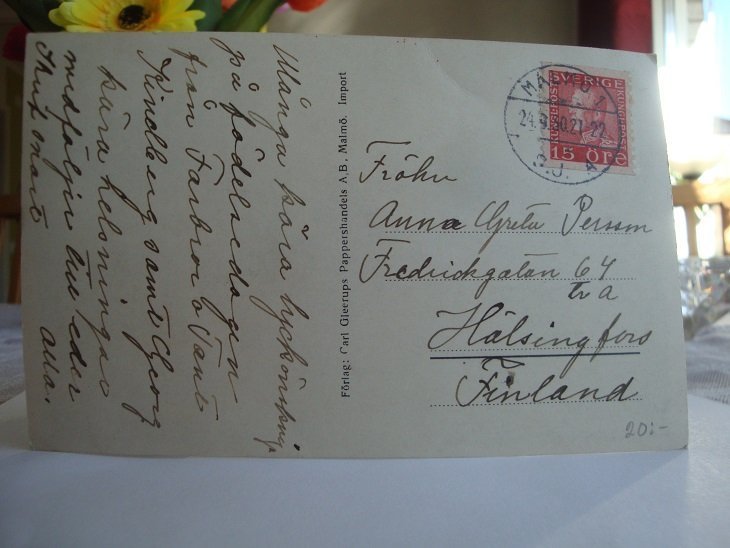 Många kära lyckönsknig
på födelsedagen
från Farbror o Tant
Kindberg samt Georg
kära helsningar
medföljer till eder
alla.
Förlag: Carl Gleerups Pappershandels A.B., Malmö. Import
MALMÖ 1
24.9.30.21-22
SVERIGE
15 ÖRE
Fröhn
Anna Greta Persson
Fredricksgatan 64
tr a
Hälsingfors
Finland
20:-